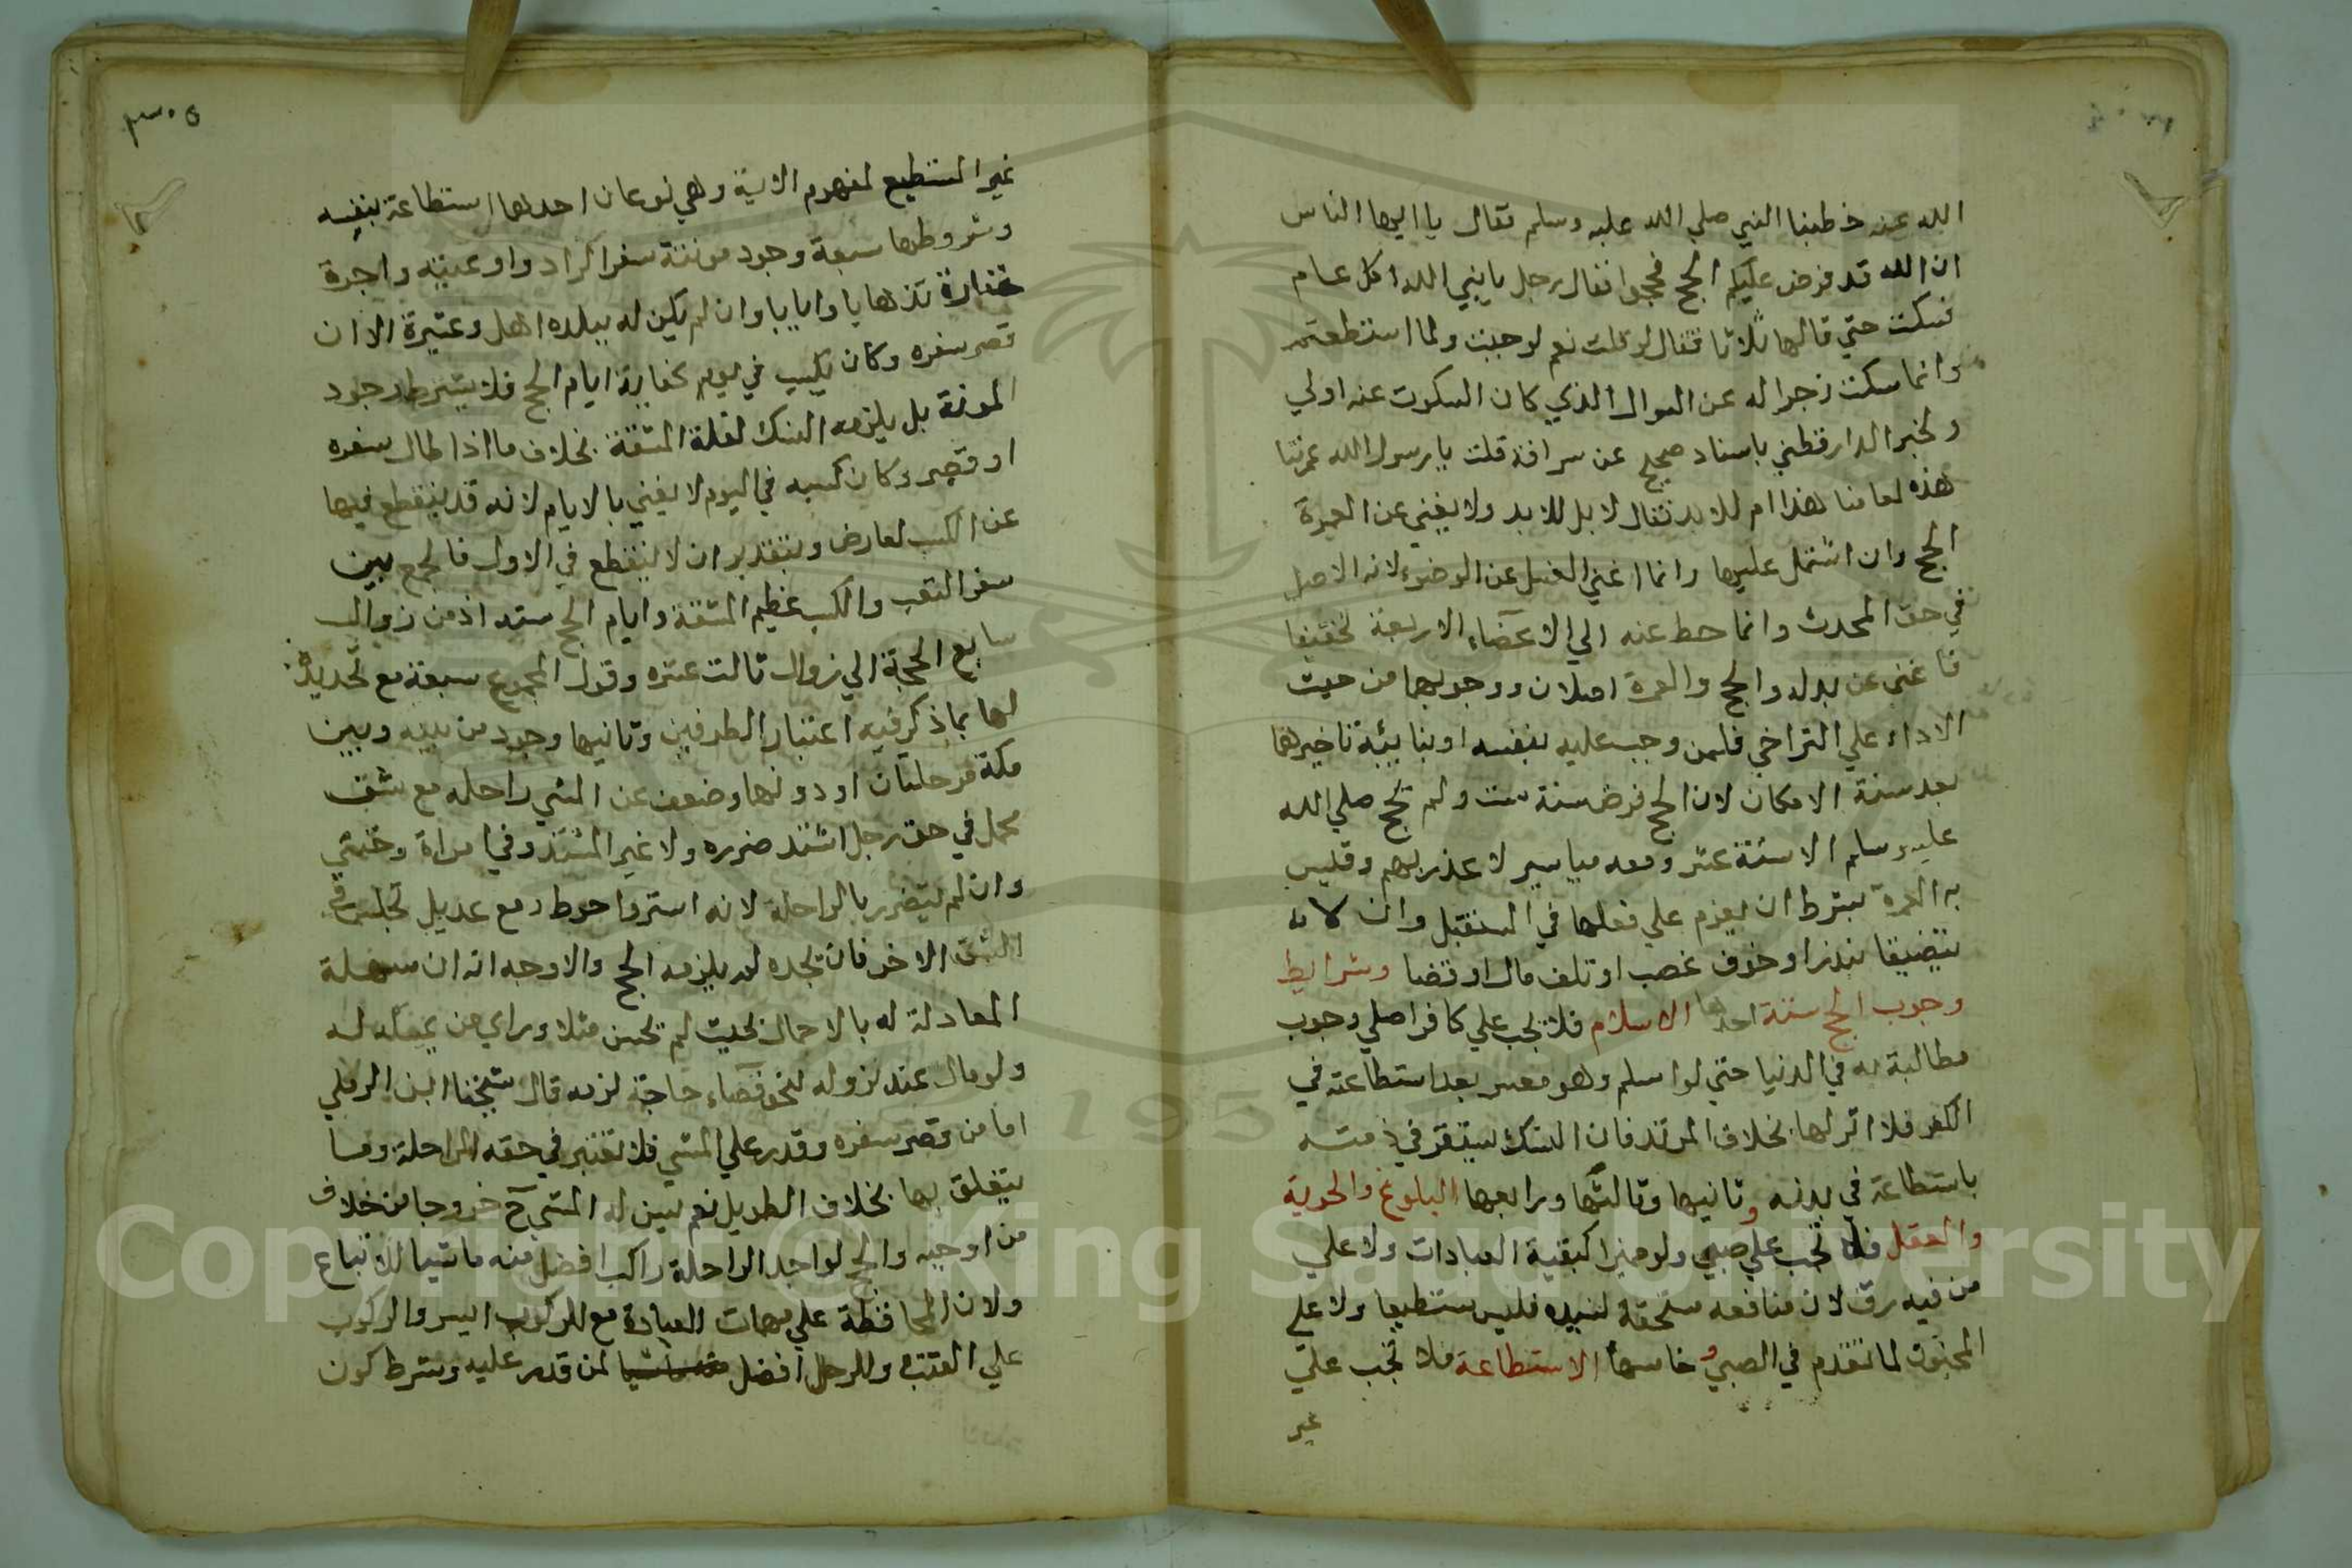 الله عنه خطبنا النبي صلي الله عليه وسلم فقال يا ايها الناس
ان الله قد فرض عليكم الحج فحجوا فقال رجل يا نبي الله اكل عام
فسكت حتي قالها ثلاثا فقال لو قلت نعم لوجبت ولما استطعتم
وانما سكت زجرا له عن السوال الذي كان السكوت عنه اولي
ولخبر الدارقطني باسناد صحيح عن سراقة قلت يا رسول الله عمرتنا
هذه لعامنا هذا ام للابد فقال لا بل للابد ولا يغني عن العمرة
الحج وان اشتمل عليها وانما اغني الغسل عن الوضوء لانه الاصل
في حق المحدث وانما حط عنه الي الاعضاء الاربعة تخفيفا
فاغني عن بدله والحج والعمرة اصلان ووجوبهما من حيث
الاداء علي التراخي فلمن وجب عليه بنفسه او بنايبه تاخيرهما
بعد سنة الامكان لان الحج فرض سنة ست ولم يحج صلي الله
عليه وسلم الا سنة عشر ومعه مياسير لا عذر بهم وقيس
به العمرة بشرط ان يعزم علي فعلها في المستقبل وان لا
يتضيقا بنذر او خوف غصب او تلف مال او قضا وشرايط
وجوب الحج ستة احدها الاسلام فلا يجب علي كافر اصلي وجوب
مطالبة به في الدنيا حتي لو اسلم وهو معسر بعد استطاعته في
الكفر فلا اثر لها بخلاف المرتد فان النسك يستقر في ذمته
باستطاعة في بدنه وثانيها وثالثها ورابعها البلوغ والحرية
والعقل فلا تجب علي صبي ولو مميزا كبقية العبادات ولا علي
من فيه رق لان منافعه مستحقة لسيده فليس مستطيعا ولا علي
المجنون لما تقدم في الصبي وخامسها الاستطاعة فلا تجب علي
غير
٣٠٥
غير المستطيع لمفهوم الاية وهي نوعان احدهما استطاعة بنفسه
وشروطها سبعة وجود مونة سفر الزاد واوعيته واجرة
خفارة ذهابا وايابا وان لم يكن له ببلده اهل وعشيرة الا ان
قصر سفره وكان يكسب في يوم كفاية ايام الحج فلا يشترط وجود
المونة بل يلزمه النسك لقلة المشقة بخلاف ما اذا طال سفره
او قصر وكان كسبه في اليوم لا يفي بالايام لانه قد ينقطع فيها
عن الكسب لعارض وبتقدير ان لا ينقطع في الاول فالجمع بين
سفر التعب والكسب عظيم المشقة وايام الحج ستة اذ من زوال
سابع الحجة الي زوال ثالث عشره وقول المجموع سبعة مع تحديده
لها بما ذكر فيه اعتبار الطرفين وثانيها وجود من بينه وبين
مكة مرحلتان او دونها وضعف عن المشي راحلة مع شق
محمل في حق رجل اشتد ضرره ولا غير المشتد وفي امراة وخنثي
وان لم يتضرر بالراحلة لانه استر واحوط ومع عديل يجلس في
الشق الاخر فان يجده لم يلزمه الحج والاوجه انه ان سهلة
المعادلة له بالاحمال بحيث لم يخش ميلا وراي من يمسكه له
ولو مال عند نزوله لنحو قضاء حاجة لزمه قال شيخنا ابن الرملي
اما من قصر سفره وقدر علي المشي فلا تعتبر في حقه الراحلة وما
يتعلق بها بخلاف الطويل نعم يسن له المشي ح خروجا من خلاف
من اوجبه والحج لواجد الراحلة راكبا افضل منه ماشيا للاتباع
ولان المحافظة علي مهمات العبادة مع الركوب ايسر والركوب
علي القتب وللرجل افضل لمن قدر عليه وشرط كون